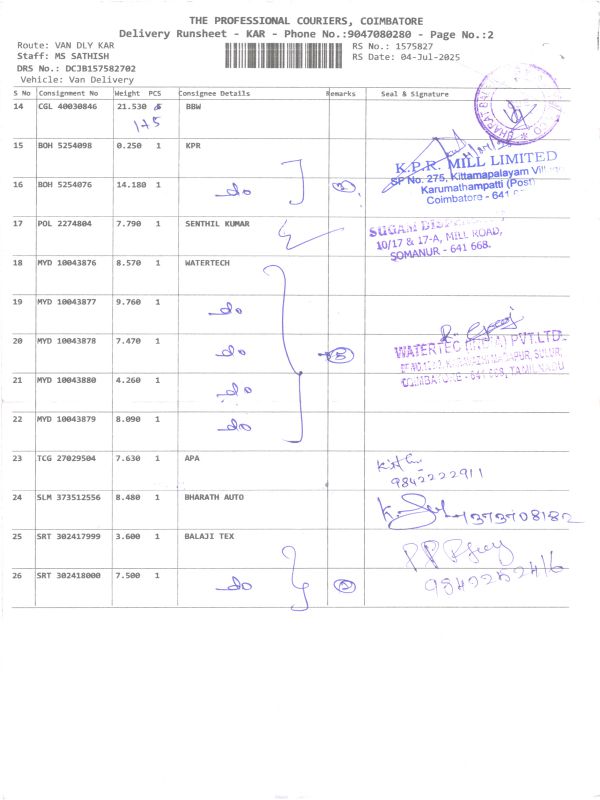 THE PROFESSIONAL COURIERS, COIMBATORE
Delivery Runsheet - KAR - Phone No.:9047080280 - Page No.:2
Route: VAN DLY KAR RS No.: 1575827
Staff: MS SATHISH RS Date: 04-Jul-2025
DRS No.: DCJB157582702
Vehicle: Van Delivery
S No Consignment No Weight PCS Consignee Details Remarks Seal & Signature
14 CGL 40030846 21.530 5 BBW
1+5
15 BOH 5254098 0.250 1 KPR
K.P.R. MILL LIMITED
SF No. 275, Kittampalayam
16 BOH 5254076 14.180 1 do 2 Karumathampatti (Post)
Coimbatore - 641
17 POL 2274804 7.790 1 SENTHIL KUMAR
SUGAM
10/17 & 17-A, MILL ROAD,
SOMANUR - 641 668.
18 MYD 10043876 8.570 1 WATERTECH
19 MYD 10043877 9.760 1 do
20 MYD 10043878 7.470 1 do 5
WATERTEC (INDIA) PVT.LTD.
COIMBATORE - 641 668, TAMIL NADU
21 MYD 10043880 4.260 1 do
22 MYD 10043879 8.090 1 do
23 TCG 27029504 7.630 1 APA
9842222911
24 SLM 373512556 8.480 1 BHARATH AUTO
1373708182
25 SRT 302417999 3.600 1 BALAJI TEX
26 SRT 302418000 7.500 1 do 2
9842252416